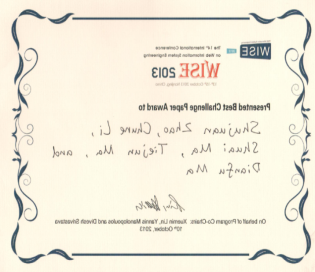 WISE
The 14th International Conference
on Web Information System Engineering
WISE 2013
Presented Best Challenge Paper Award to
Shujuan Zhao, Chune Li,
Shuai Ma, Tiejun Ma, and
Dianfu Ma
On behalf of Program Co-Chairs: Xuemin Lin, Yannis Manolopoulos and Divesh Srivastava
10th October, 2013